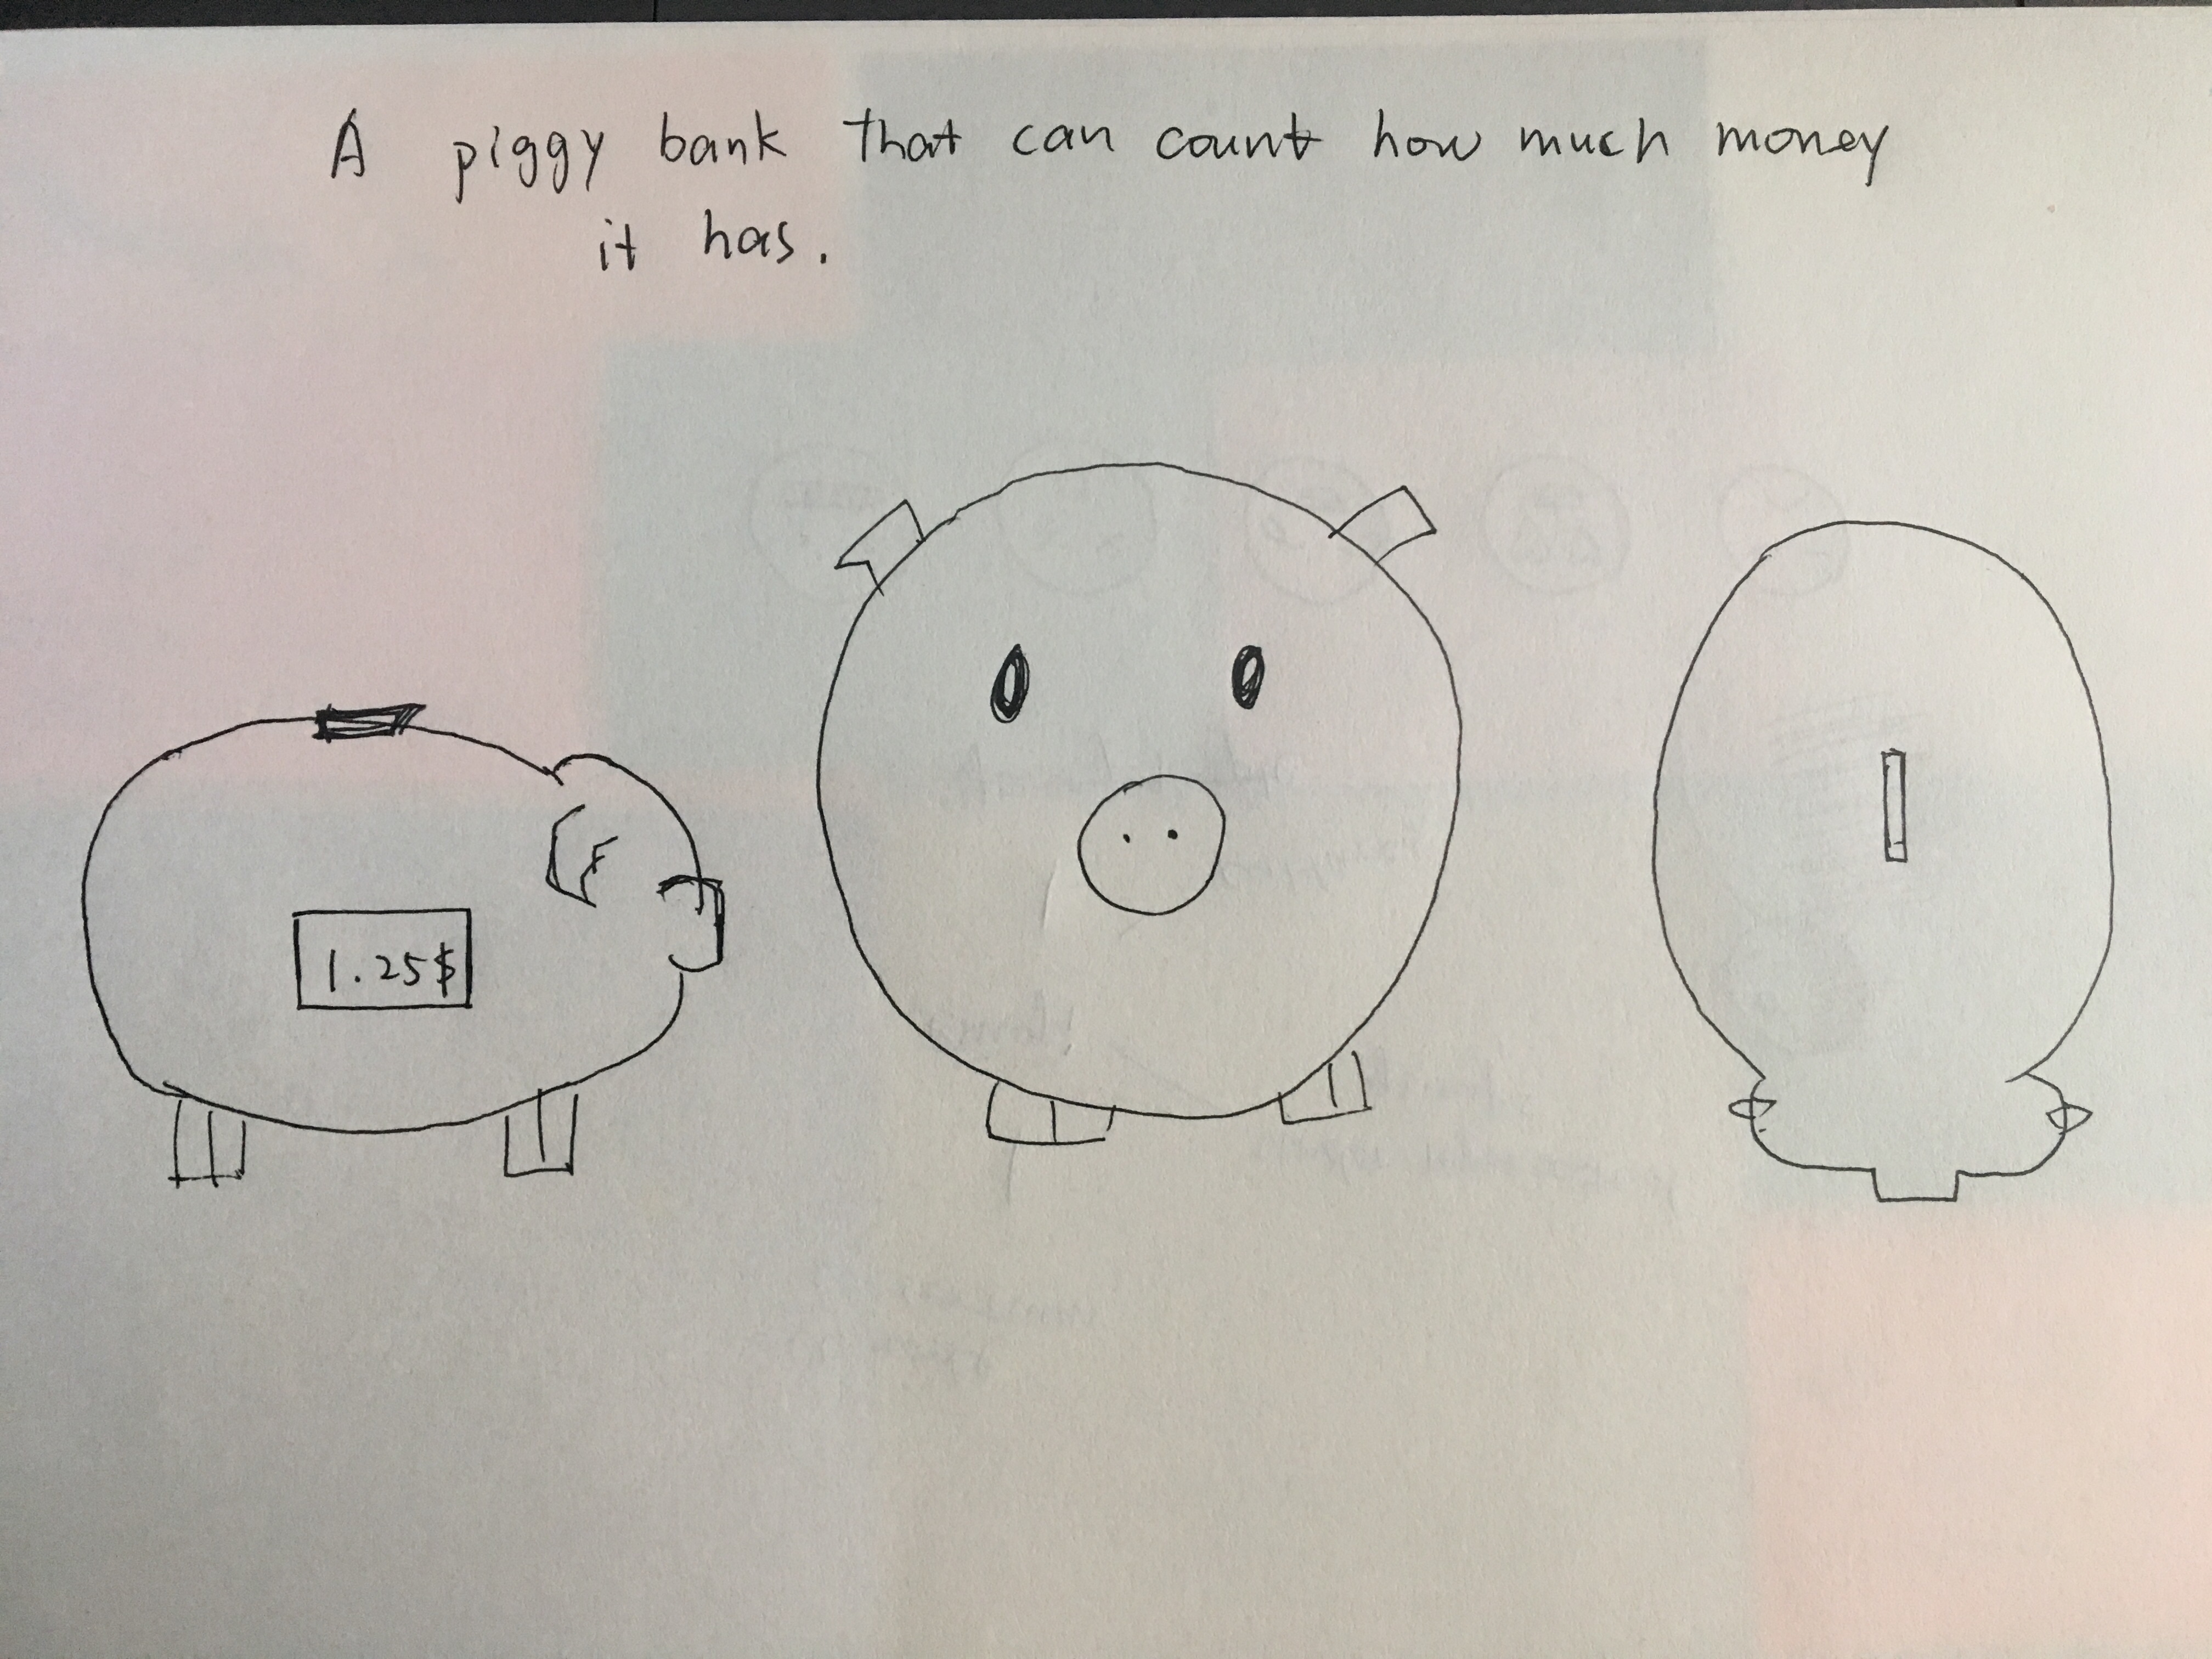 A piggy bank that can count how much money
it has.
1.25$